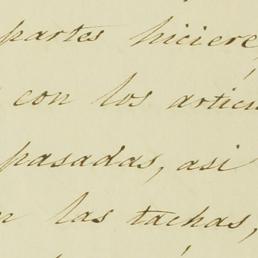 partes hiciere
con los artícu
pasadas, asi
las tachas,